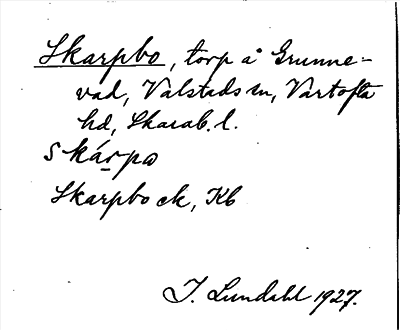 Skarpbo, torp å Grunne-
vad, Valstads sn, Vartofta
hd, Skarab. l.
skárpo
Skarpbo ek, Kb
I. Lundahl 1927.